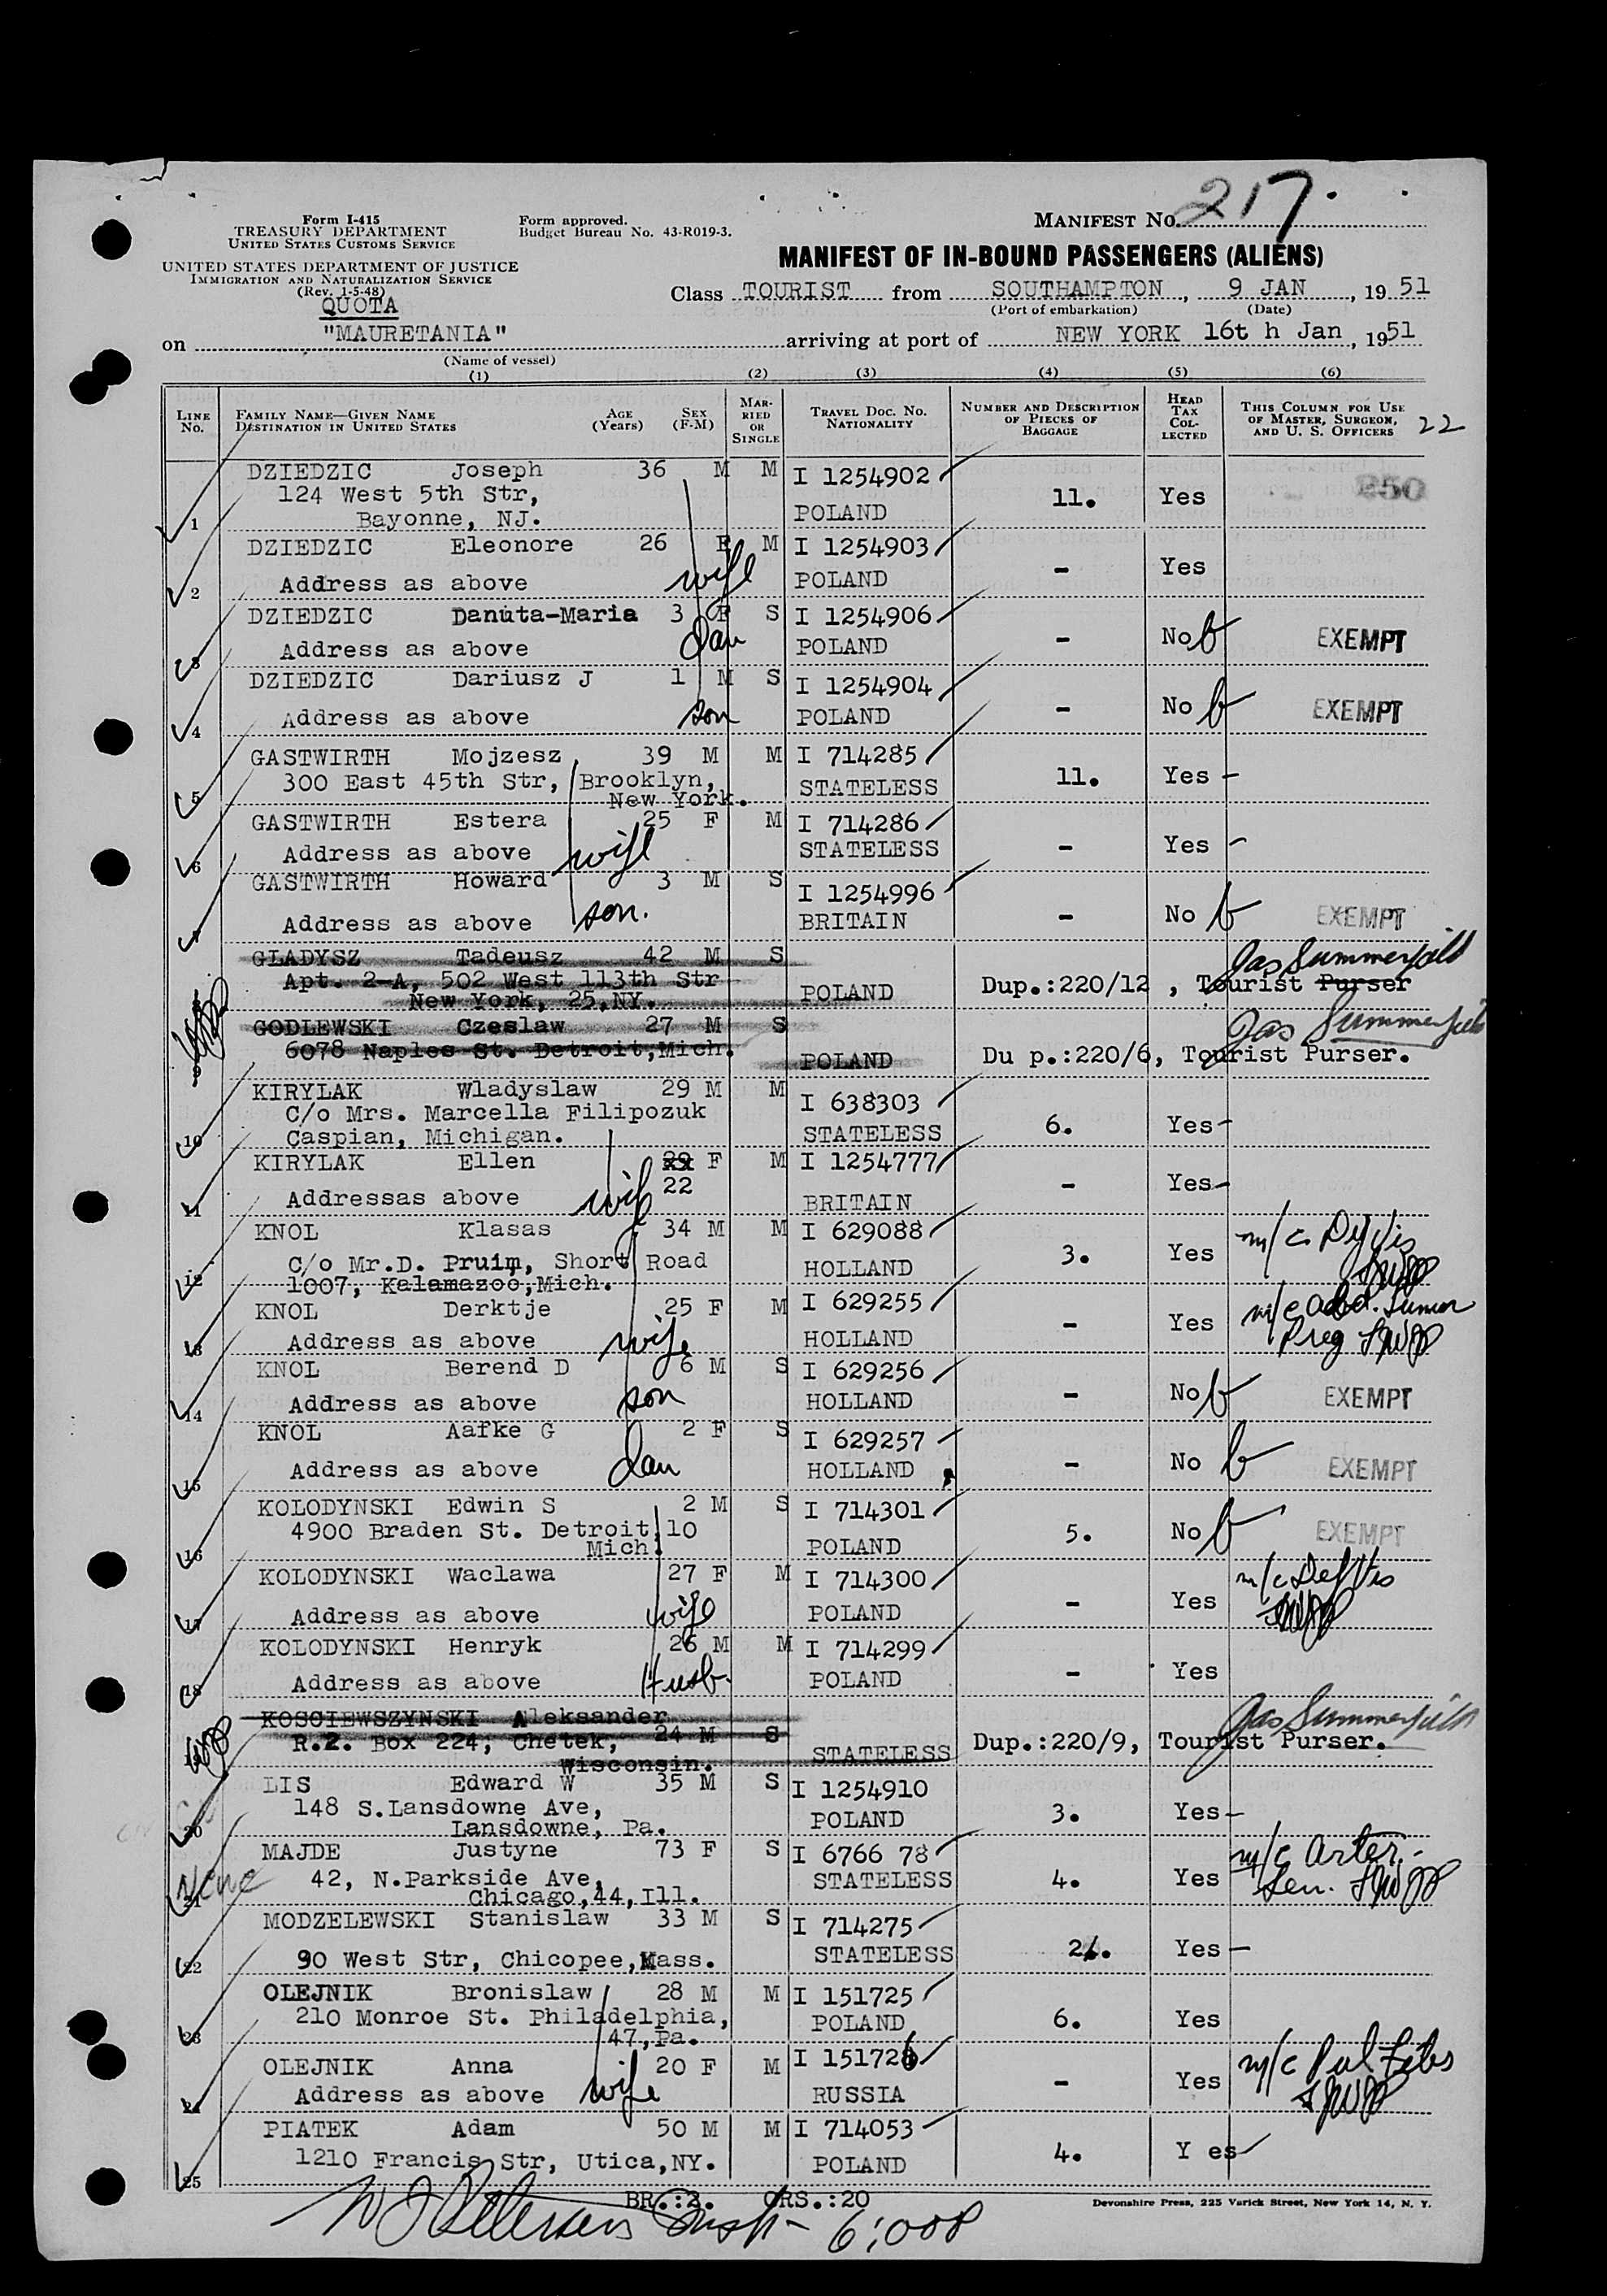 217.
Form I-415
TREASURY DEPARTMENT
UNITED STATES CUSTOMS SERVICE
Form approved.
Budget Bureau No. 43-R019-3.
MANIFEST No.
UNITED STATES DEPARTMENT OF JUSTICE
IMMIGRATION AND NATURALIZATION SERVICE
(Rev. 1-5-48)
QUOTA
MANIFEST OF IN-BOUND PASSENGERS (ALIENS)
Class TOURIST from SOUTHAMPTON, 9 JAN, 19 51
(Port of embarkation) (Date)
on "MAURETANIA" arriving at port of NEW YORK 16t h Jan, 1951
(Name of vessel)
(1) (2) (3) (4) (5) (6)
LINE No. FAMILY NAME—GIVEN NAME DESTINATION IN UNITED STATES AGE (Years) SEX (F-M) MARRIED OR SINGLE TRAVEL DOC. NO. NATIONALITY NUMBER AND DESCRIPTION OF PIECES OF BAGGAGE HEAD TAX COLLECTED THIS COLUMN FOR USE OF MASTER, SURGEON, AND U. S. OFFICERS 22
DZIEDZIC Joseph 36 M M I 1254902
124 West 5th Str, 11. Yes
1 Bayonne, NJ. POLAND
DZIEDZIC Eleonore 26 F M I 1254903
2 Address as above wife POLAND - Yes
DZIEDZIC Danuta-Maria 3 F S I 1254906
3 Address as above dau POLAND - No EXEMPT
DZIEDZIC Dariusz J 1 M S I 1254904
4 Address as above son POLAND - No EXEMPT
GASTWIRTH Mojzesz 39 M M I 714285
300 East 45th Str, Brooklyn, STATELESS 11. Yes -
5 New York.
GASTWIRTH Estera 25 F M I 714286
6 Address as above wife STATELESS - Yes -
GASTWIRTH Howard 3 M S I 1254996
7 Address as above son. BRITAIN - No EXEMPT
GLADYSZ Tadeusz 42 M S Jas Summerfield
Apt. 2-A, 502 West 113th Str POLAND Dup.:220/12 , Tourist Purser
New York, 25,NY.
GODLEWSKI Czeslaw 27 M S Jas Summerfield
9 6078 Naples St. Detroit,Mich. POLAND Du p.:220/6, Tourist Purser.
KIRYLAK Wladyslaw 29 M M I 638303
C/o Mrs. Marcella Filipozuk 6. Yes-
10 Caspian, Michigan. STATELESS
KIRYLAK Ellen 29 F M I 1254777
22
11 Addressas above wife BRITAIN - Yes-
KNOL Klasas 34 M M I 629088
C/o Mr.D. Pruim, Short Road HOLLAND 3. Yes
12 1007, Kalamazoo,Mich.
KNOL Derktje 25 F M I 629255
13 Address as above wife HOLLAND - Yes
KNOL Berend D 6 M S I 629256
14 Address as above son HOLLAND - No EXEMPT
KNOL Aafke G 2 F S I 629257
15 Address as above dau HOLLAND - No EXEMPT
KOLODYNSKI Edwin S 2 M S I 714301
4900 Braden St. Detroit 10 5. No EXEMPT
16 Mich. POLAND
KOLODYNSKI Waclawa 27 F M I 714300
17 Address as above wife POLAND - Yes
KOLODYNSKI Henryk 26 M M I 714299
18 Address as above Husb. POLAND - Yes
KOSCIEWSZYNSKI Aleksander Jas Summerfield
R.2. Box 224, Chetek, 24 M S STATELESS Dup.:220/9, Tourist Purser.
Wisconsin.
LIS Edward W 35 M S I 1254910
148 S.Lansdowne Ave, POLAND 3. Yes-
20 Lansdowne, Pa.
MAJDE Justyne 73 F S I 6766 78
42, N.Parkside Ave, STATELESS 4. Yes
21 Chicago,44,Ill.
MODZELEWSKI Stanislaw 33 M S I 714275
22 90 West Str, Chicopee,Mass. STATELESS 2. Yes -
OLEJNIK Bronislaw 28 M M I 151725
210 Monroe St. Philadelphia, POLAND 6. Yes
23 47,Pa.
OLEJNIK Anna 20 F M I 151726
24 Address as above wife RUSSIA - Yes
PIATEK Adam 50 M M I 714053
25 1210 Francis Str, Utica,NY. POLAND 4. Y es
BR.:2. ORS.:20
Devonshire Press, 225 Varick Street, New York 14, N. Y.